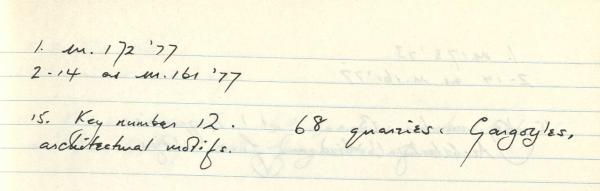 1. M. 172 '77
2-14 as M. 161 '77
15. Key number 12. 68 quarries. Gargoyles,
architectural motifs.